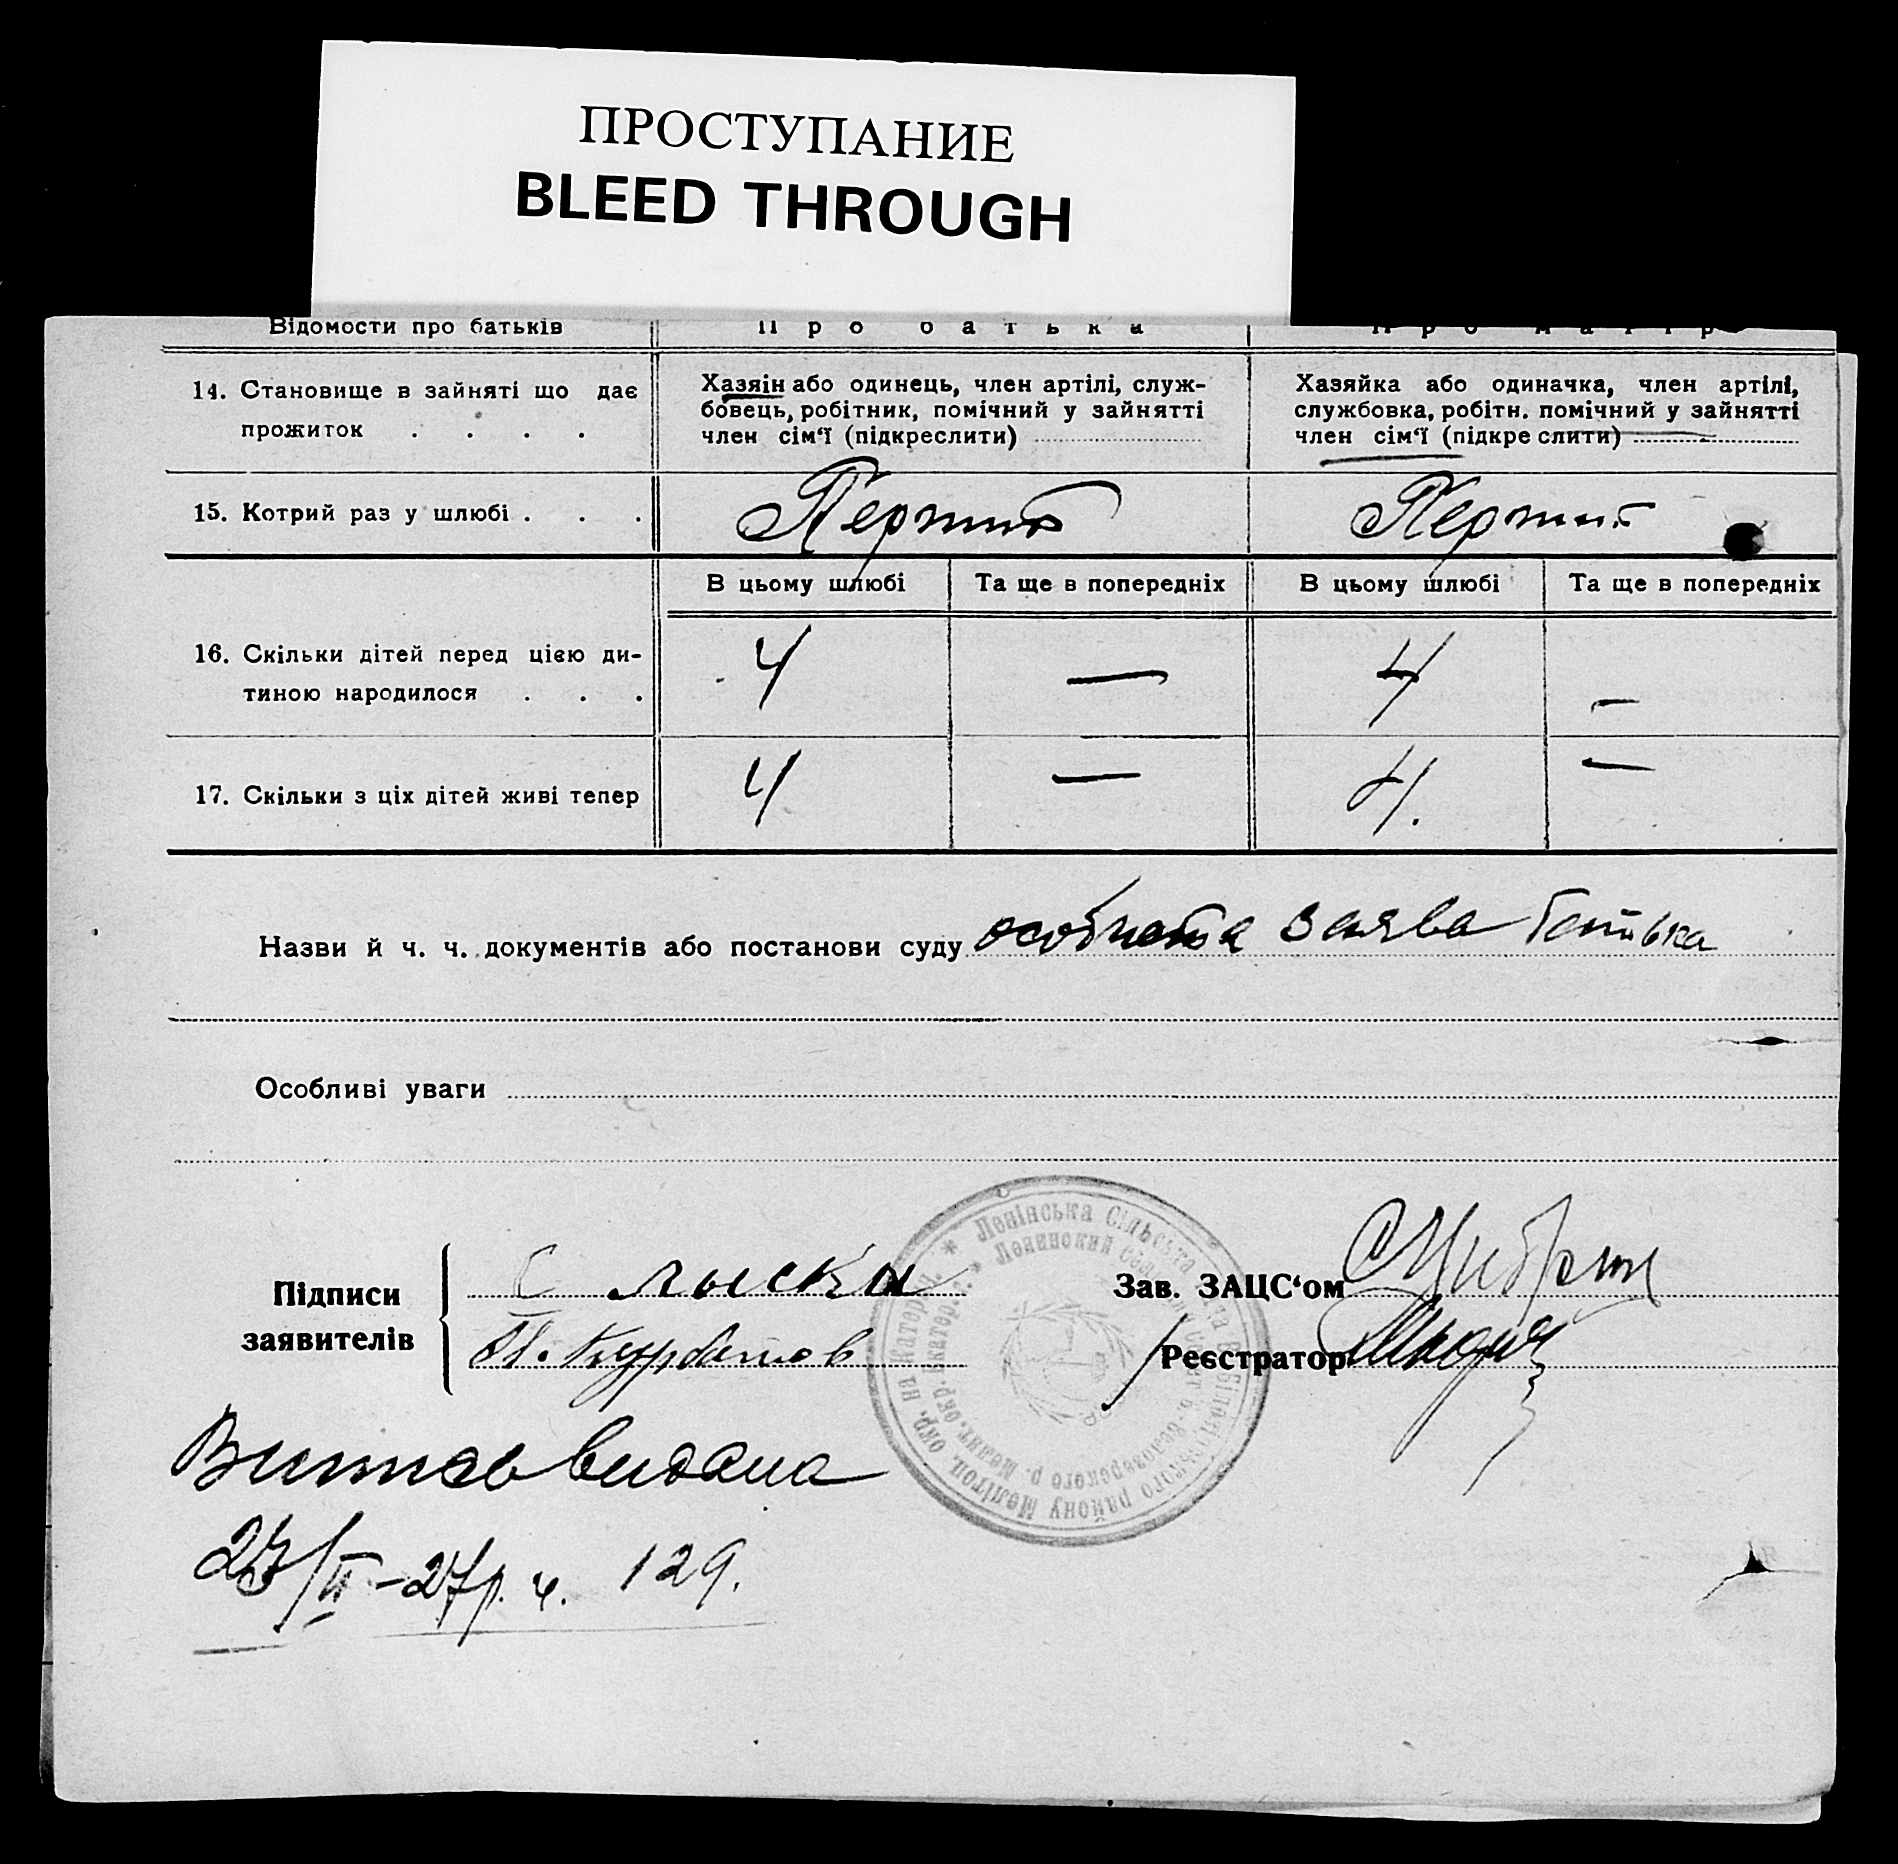 ПРОСТУПАНИЕ
BLEED THROUGH
Відомости про батьків
Про батька
Про матір
14. Становище в зайняті що дає
прожиток . . . .
Хазяін або одинець, член артілі, служ-
бовець, робітник, помічний у зайнятті
член сім‘ї (підкреслити)
Хазяйка або одиначка, член артілі,
службовка, робітн. помічний у зайнятті
член сім‘ї (підкре слити)
15. Котрий раз у шлюбі . . .
Перший
Перший
В цьому шлюбі
Та ще в попередніх
В цьому шлюбі
Та ще в попередніх
16. Скільки дітей перед цією ди-
тиною народилося . . .
4 — 4 —
17. Скільки з ціх дітей живі тепер
4 — 4. —
Назви й ч. ч. документів або постанови суду особиста заява батька
Особливі уваги
Підписи
заявителів
П. Курбатов
Зав. ЗАЦС‘ом
Реєстратор
* Ленінська Сільська Рада Білозірського району Мелітоп. окр. на Катерин.
* Ленинский сельский Совет Б.-Белозерского р. Мелит. окр. Екатер.
Витяг видана
23/II-27р. ч. 129.